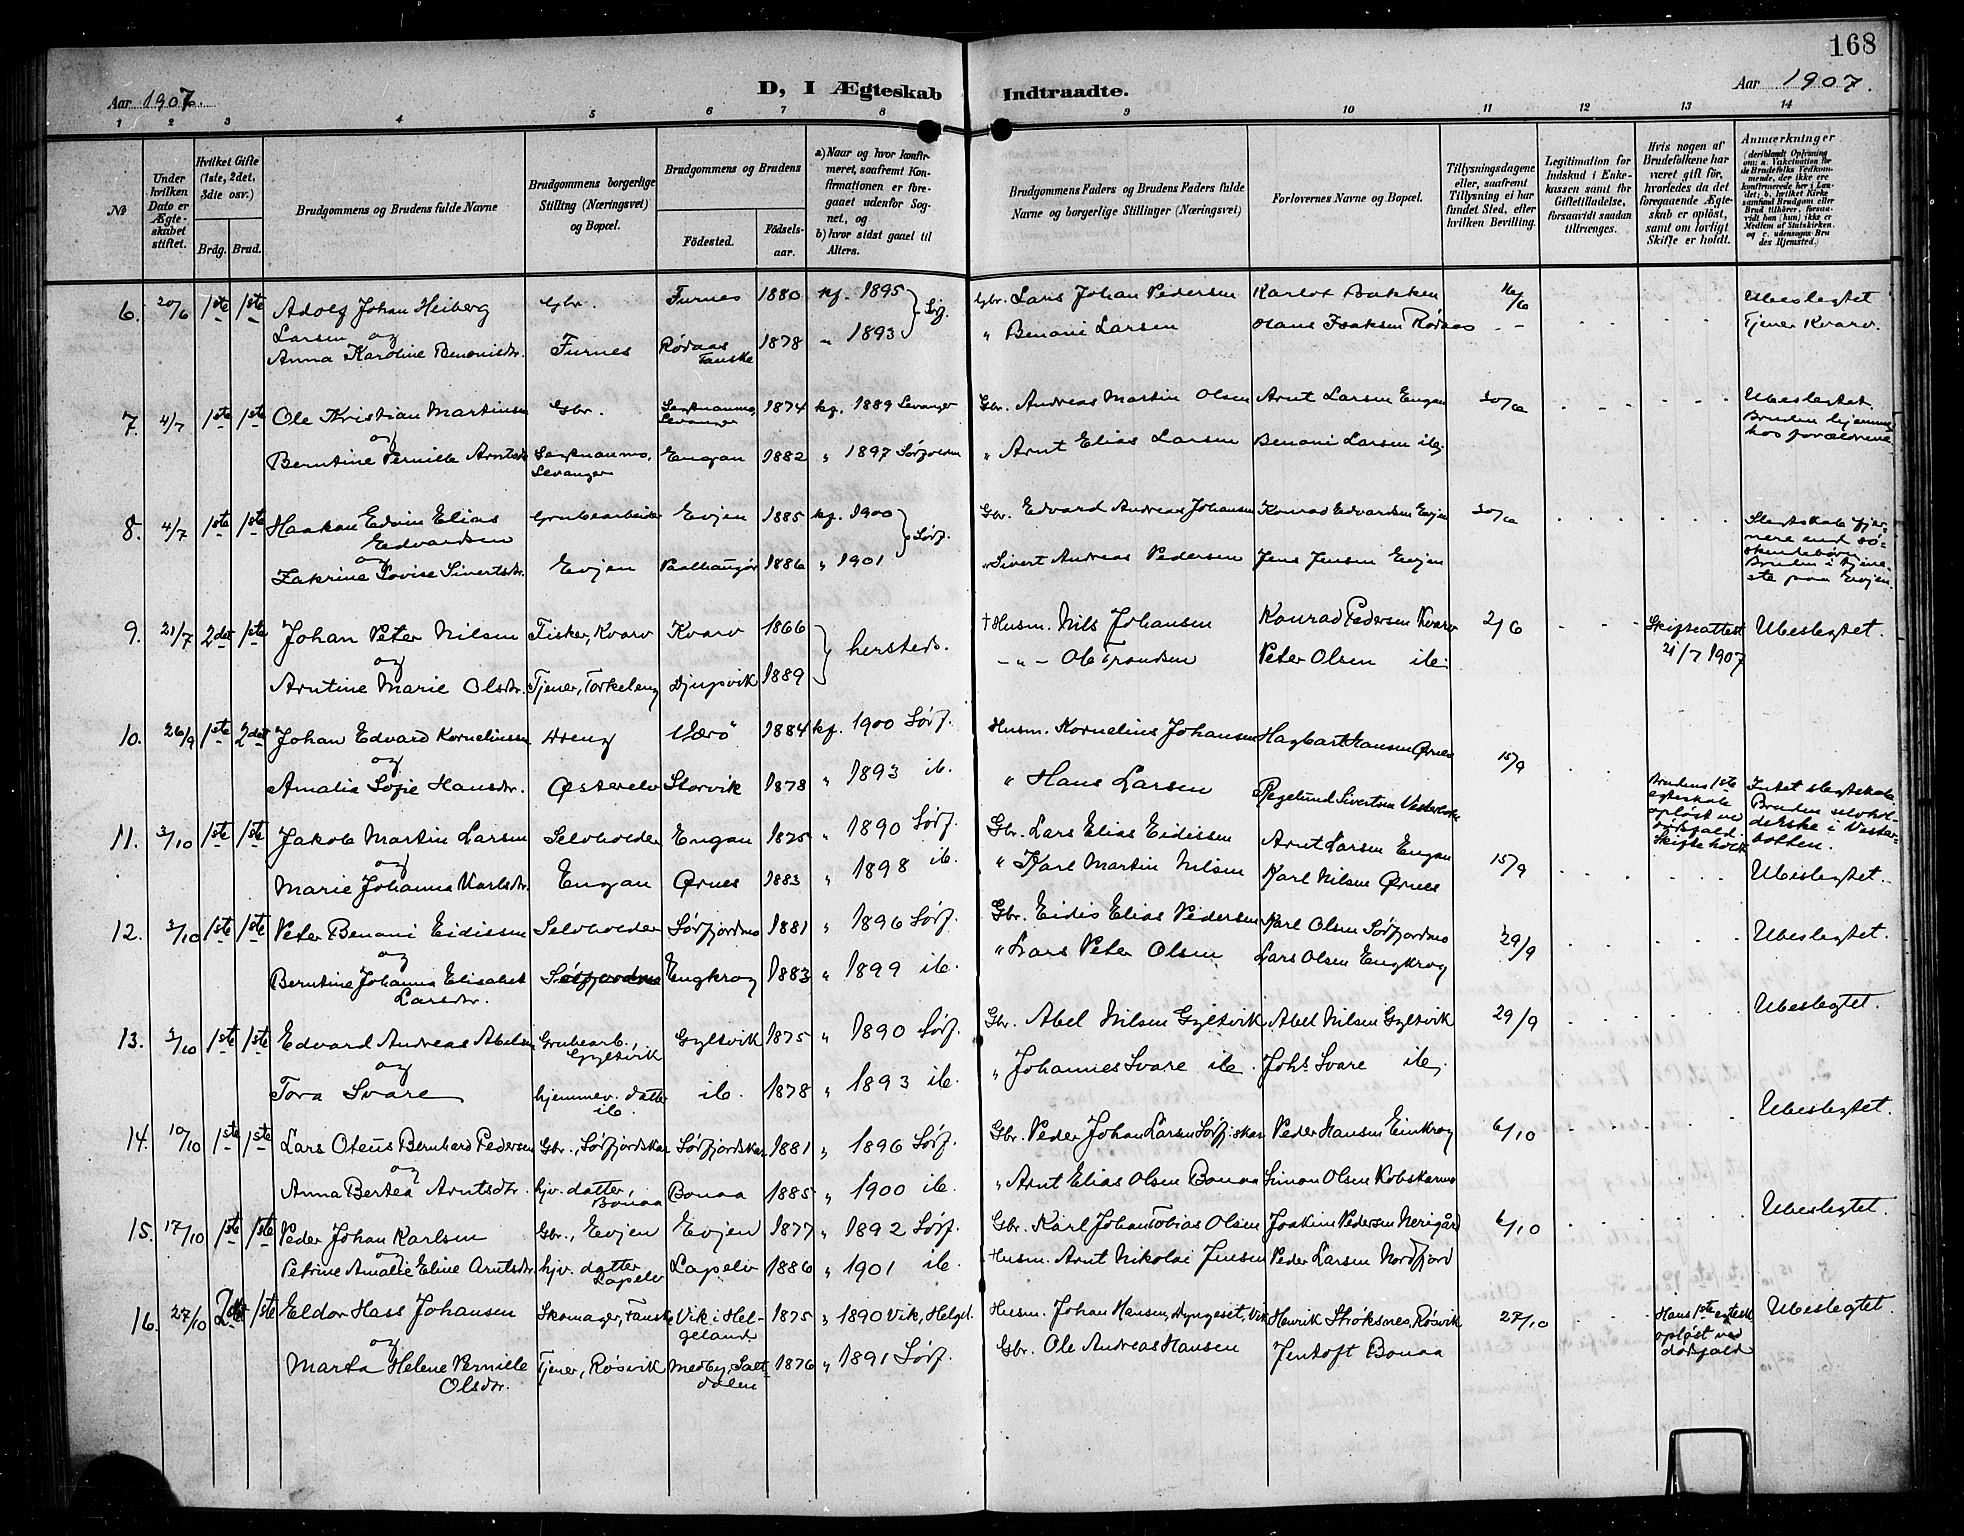 168
Aar 1907.
D, I Ægteskab Indtraadte.
Aar 1907.
1 2 3 4 5 6 7 8 9 10 11 12 13 14
№
Under hvilken Dato er Ægteskabet stiftet.
Hvilket Gifte (1ste, 2det, 3die osv.)
Brdg. Brud.
Brudgommens og Brudens fulde Navne
Brudgommens borgerlige Stilling (Næringsvei) og Bopæl.
Brudgommens og Brudens
Fødested. Fødselsaar.
a) Naar og hvor konfirmeret, saafremt Konfirmationen er foregaaet udenfor Sognet, og
b) hvor sidst gaaet til Alters.
Brudgommens Faders og Brudens Faders fulde Navne og borgerlige Stillinger (Næringsvei)
Forlovernes Navne og Bopæl.
Tillysningsdagene eller, saafremt Tillysning ei har fundet Sted, efter hvilken Bevilling.
Legitimation for Indskud i Enkekassen samt for Giftetilladelse, forsaavidt saadan tiltrænges.
Hvis nogen af Brudefolkene har været gift før, hvorledes da det foregaaende Ægteskab er opløst, samt om lovligt Skifte er holdt.
Anmærkninger
(deriblandt Oplysning om: a. Vakcination for de Brudefolks Vedkommende, der ikke ere konfirmerede her i Landet; b. hvilket Kirkesamfund Brudgom eller Brud tilhører, forsaavidt han (hun) ikke er Medlem af Statskirken, og c. udensogns Brudes Hjemsted.)
6. 20/6 1ste 1ste Adolf Johan Heiberg Gbr. Furnes 1880 kf. 1895 Sørf. Gbr. Lars Johan Pedersen Karlot Bakken 16/6 Ubeslegtet
Larsen og
Anna Karoline Benonisdr. Furnes Rødaas Fauske 1878 " 1893 " Benoni Larsen Hans Isaksen Rødaas Tjener Kvarv.
7. 4/7 1ste 1ste Ole Kristian Martinsen Gbr. Levanger 1874 kf. 1889 Levanger Gbr. Andreas Martin Olsen Arnt Larsen Engan 30/6 Ubeslegtet.
og Bruden hjemme hos forældrene
Berntine Pernille Arntsdr. Levanger Engan 1882 " 1897 Sørfolden " Arnt Elias Larsen Benoni Larsen ib.
8. 4/7 1ste 1ste Haakon Edvin Elias Grubearbeider Evjen 1885 kf. 1900 Sørf. Gbr. Edvard Andreas Johansen Konrad Edvardsen Evjen 30/6 Slegtskab fjernere end søskendebørn.
Edvardsen
og
Zakrine Lovise Sivertsdr. Evjen 1886 " 1901 " Sivert Andreas Pedersen Jens Jensen Evjen Bruden i tjeneste paa Evjen.
9. 21/7 2det 1ste Johan Peter Nilsen Fisker, Kvarv Kvarv 1866 hersteds. † Husm. Nils Johansen Konrad Pedersen Kvarv 2/6 Skifteattest 21/7 1907 Ubeslegtet.
og
Arntine Marie Olsdr. Tjener, Torkeleng Djupvik 1889 - " - Ole Trondsen Peter Olsen ib.
10. 26/9 1ste 2det Johan Edvard Korneliussen Dreng Værø 1884 kf. 1900 Sørf. Husm. Kornelius Johansen Hagbart Hansen Ørnes 15/9
og
Amalia Sofie Hansdr. Østerelv Storvik 1878 " 1893 ib. " Hans Larsen Sivertsen Brudens 1ste egteskab opløst ved dødsfald. Skifte holdt Intet slegtskab. Bruden selvholderske i Vesterbotten.
11. 3/10 1ste 1ste Jakob Martin Larsen Selvholder Engan 1875 " 1890 Sørf. Gbr. Lars Elias Eidissen Arnt Larsen Engan 15/9 Ubeslegtet.
og
Marie Johanna Karlsdr. Engan Ørnes 1883 " 1898 ib. " Karl Martin Nilsen Karl Nilsen Ørnes
12. 3/10 1ste 1ste Peter Benoni Eidissen Selvholder Sørfjordmo 1881 " 1896 Sørf. Gbr. Eidis Elias Pedersen Karl Olsen Sørfjordmo 29/9 Ubeslegtet.
og
Berntine Johanna Elisabet Sørfjordmo Engkrog 1883 " 1899 ib. " Lars Peter Olsen Lars Olsen Engkrog
Larsdr.
13. 3/10 1ste 1ste Edvard Andreas Abelsen Grubearb., Gyltvik Gyltvik 1875 " 1890 Sørf. Gbr. Abel Nilsen Gyltvik Abel Nilsen Gyltvik 29/9 Ubeslegtet.
og
Tora Svare hjemmev. datter ib. ib. 1878 " 1893 ib. " Johannes Svare ib. Johs Svare ib.
14. 10/10 1ste 1ste Lars Oteus Bernhard Pedersen Gbr., Sørfjordskar Sørfjordskar 1881 " 1896 Sørf. Gbr. Peder Johan Larsen Sørfj.skar Peder Hansen Einkrog 6/10 Ubeslegtet.
og
Anna Bertea Arntsdr. hjv. datter, Bonaa Bonaa 1885 " 1900 ib. " Arnt Elias Olsen Bonaa Simon Olsen
15. 17/10 1ste 1ste Peder Johan Karlsen Gbr., Evjen Evjen 1877 " 1892 Sørf. Gbr. Karl Johan Tobias Olsen Joakim Pedersen Nerigård 6/10 Ubeslegtet.
og
Petrine Amalie Eline Arntsdr. hjv. datter Lapelv Lapelv 1886 " 1901 ib. Husm. Arnt Nikolai Jensen Peder Larsen Nordfjord
16. 27/10 2det 1ste Eldor Hass Johansen Skomager, Fauske Vik i Helgeland 1875 " 1890 Vik, Helgel. Husm. Johan Hansen, Vik Henrik Strøksnes, Røsvik 27/10 Hans 1ste egtesk. opløst ved dødsfald Ubeslegtet.
og
Marta Helene Pernille Tjener, Røsvik Medby, Saltdalen 1876 " 1891 Sørf. Gbr. Ole Andreas Hansen Jentoft Bonaa
Olsdr.